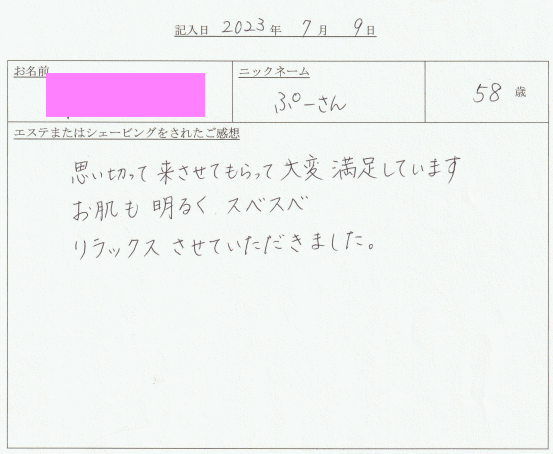 記入日 2023年 7月 9日
お名前
ニックネーム
ぷーさん
58 歳
エステまたはシェービングをされたご感想
思い切って来させてもらって大変満足しています
お肌も明るくスベスベ
リラックスさせていただきました。